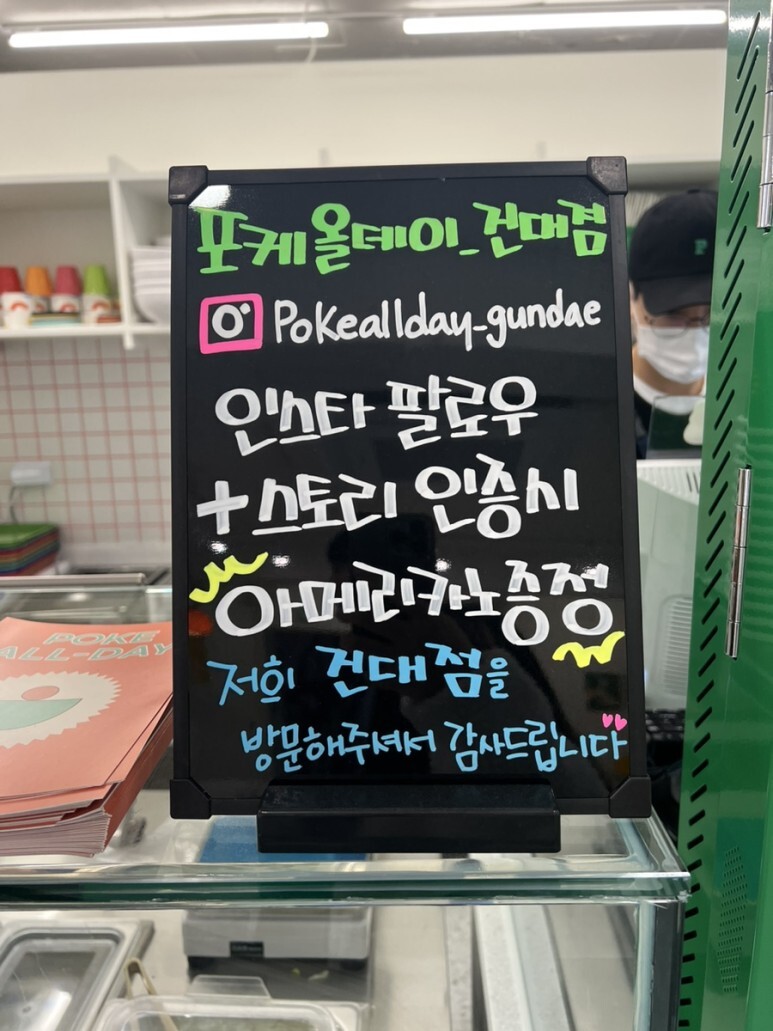 포케올데이_건대점
Pokeallday_gundae
인스타 팔로우
+스토리 인증시
아메리카노증정
저희 건대점을
방문해주셔서 감사드립니다
POKE
ALL-DAY
P